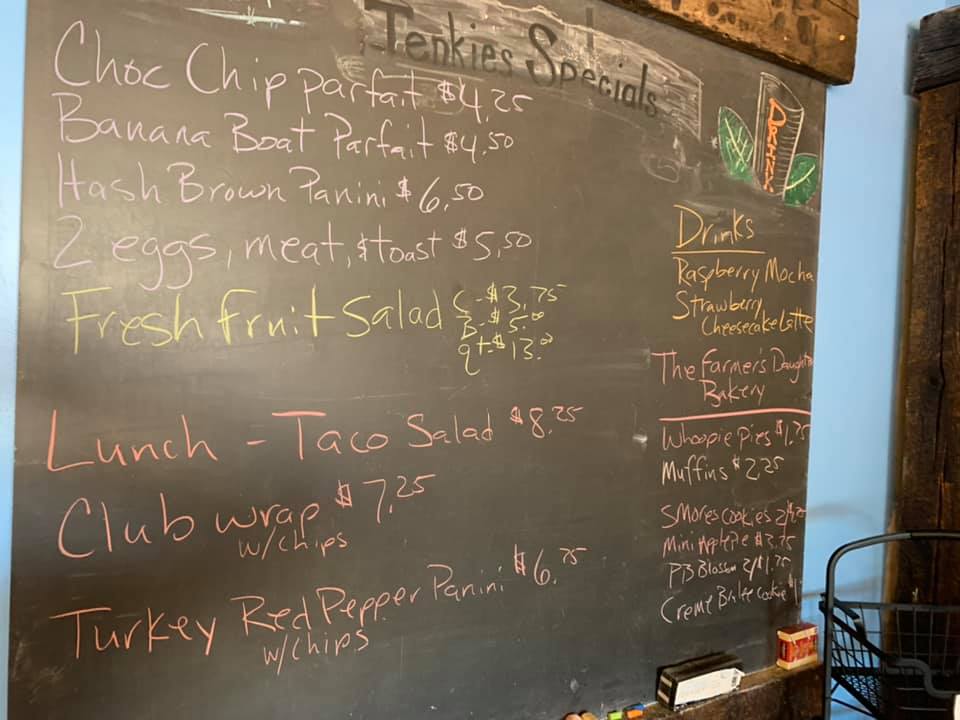 Tenkies Specials
Choc Chip Parfait $4.25
Banana Boat Parfait $4.50
Hash Brown Panini $6.50
2 eggs, meat, & toast $5.50
Fresh fruit Salad S-$3.75
B-$5.00
qt-$13.00
Lunch - Taco Salad $8.25
Club wrap $7.25
w/chips
Turkey Red Pepper Panini $6.75
w/chips
DRINK
Drinks
Raspberry Mocha
Strawberry
Cheesecake Latte
The Farmer's Daughter
Bakery
Whoopie Pies $1.75
Muffins $2.25
SMores Cookies
Mini Apple Pie $3.75
PB Blossom 2/$1.75
Creme Brulee Cookie